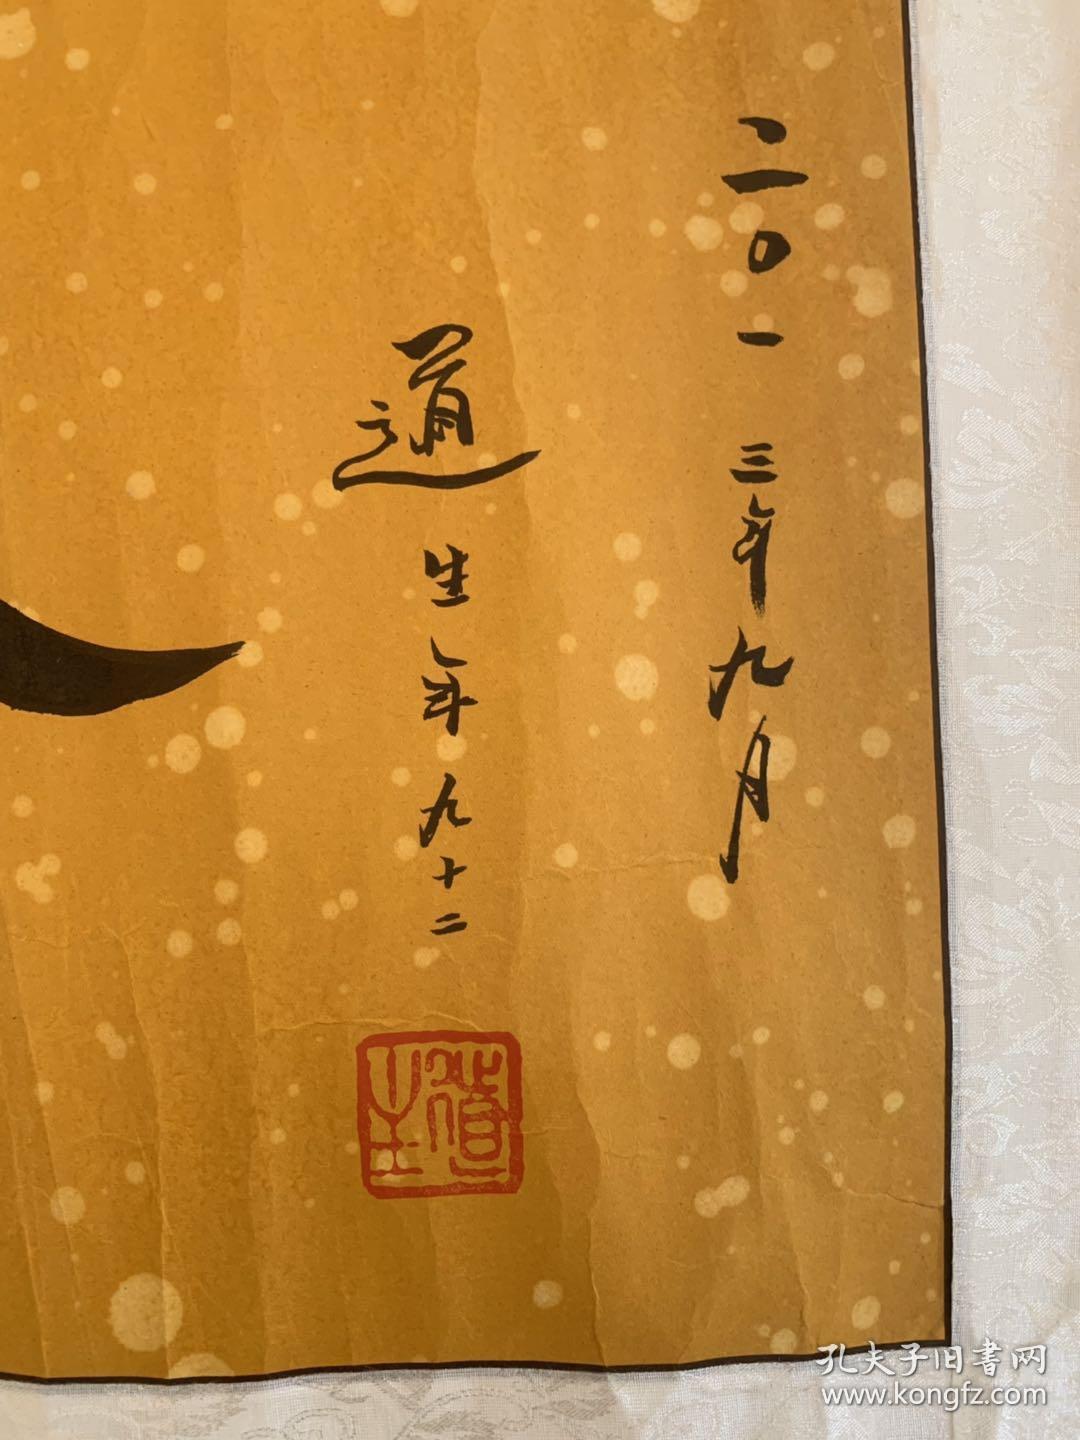 二〇一三年九月
道生年九十二
道生
孔夫子旧書网
www.kongfz.com